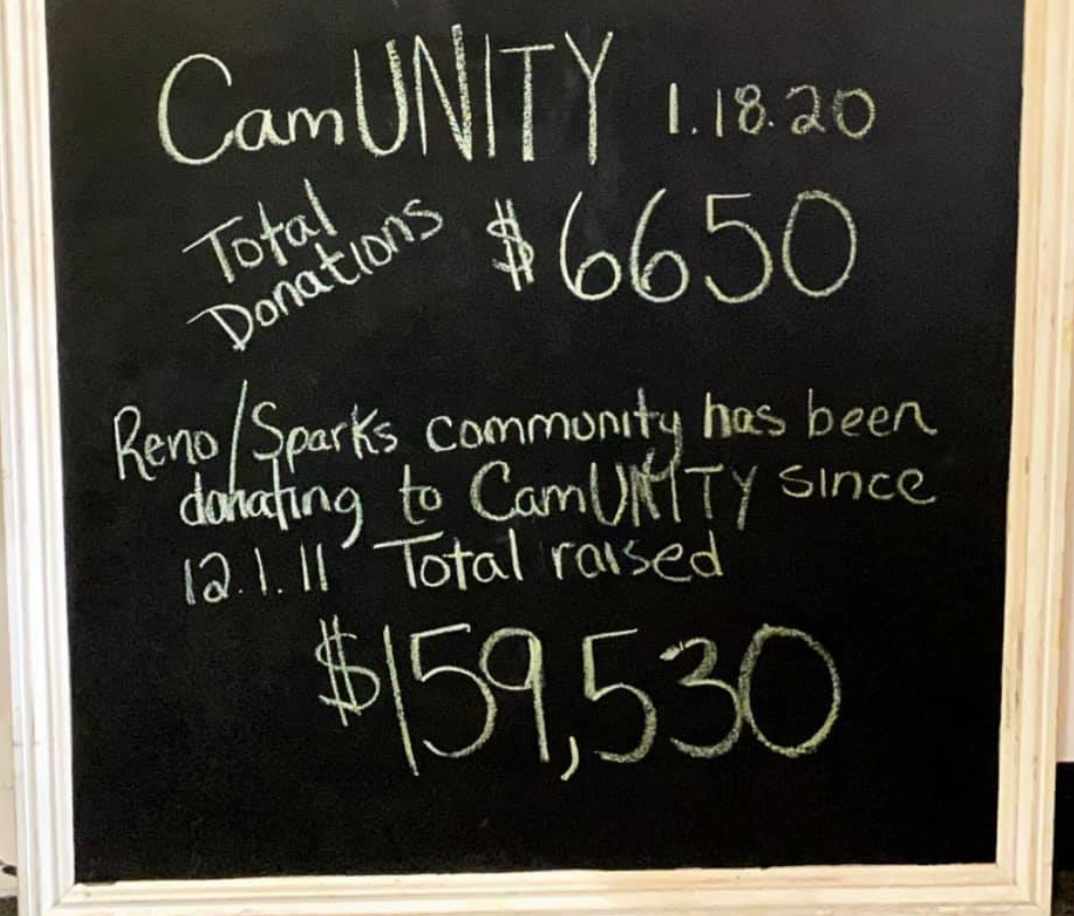 CamUNITY 1.18.20
Total
Donations $6650
Reno/Sparks community has been
donating to CamUNITY since
12.1.11 Total raised
$159,530